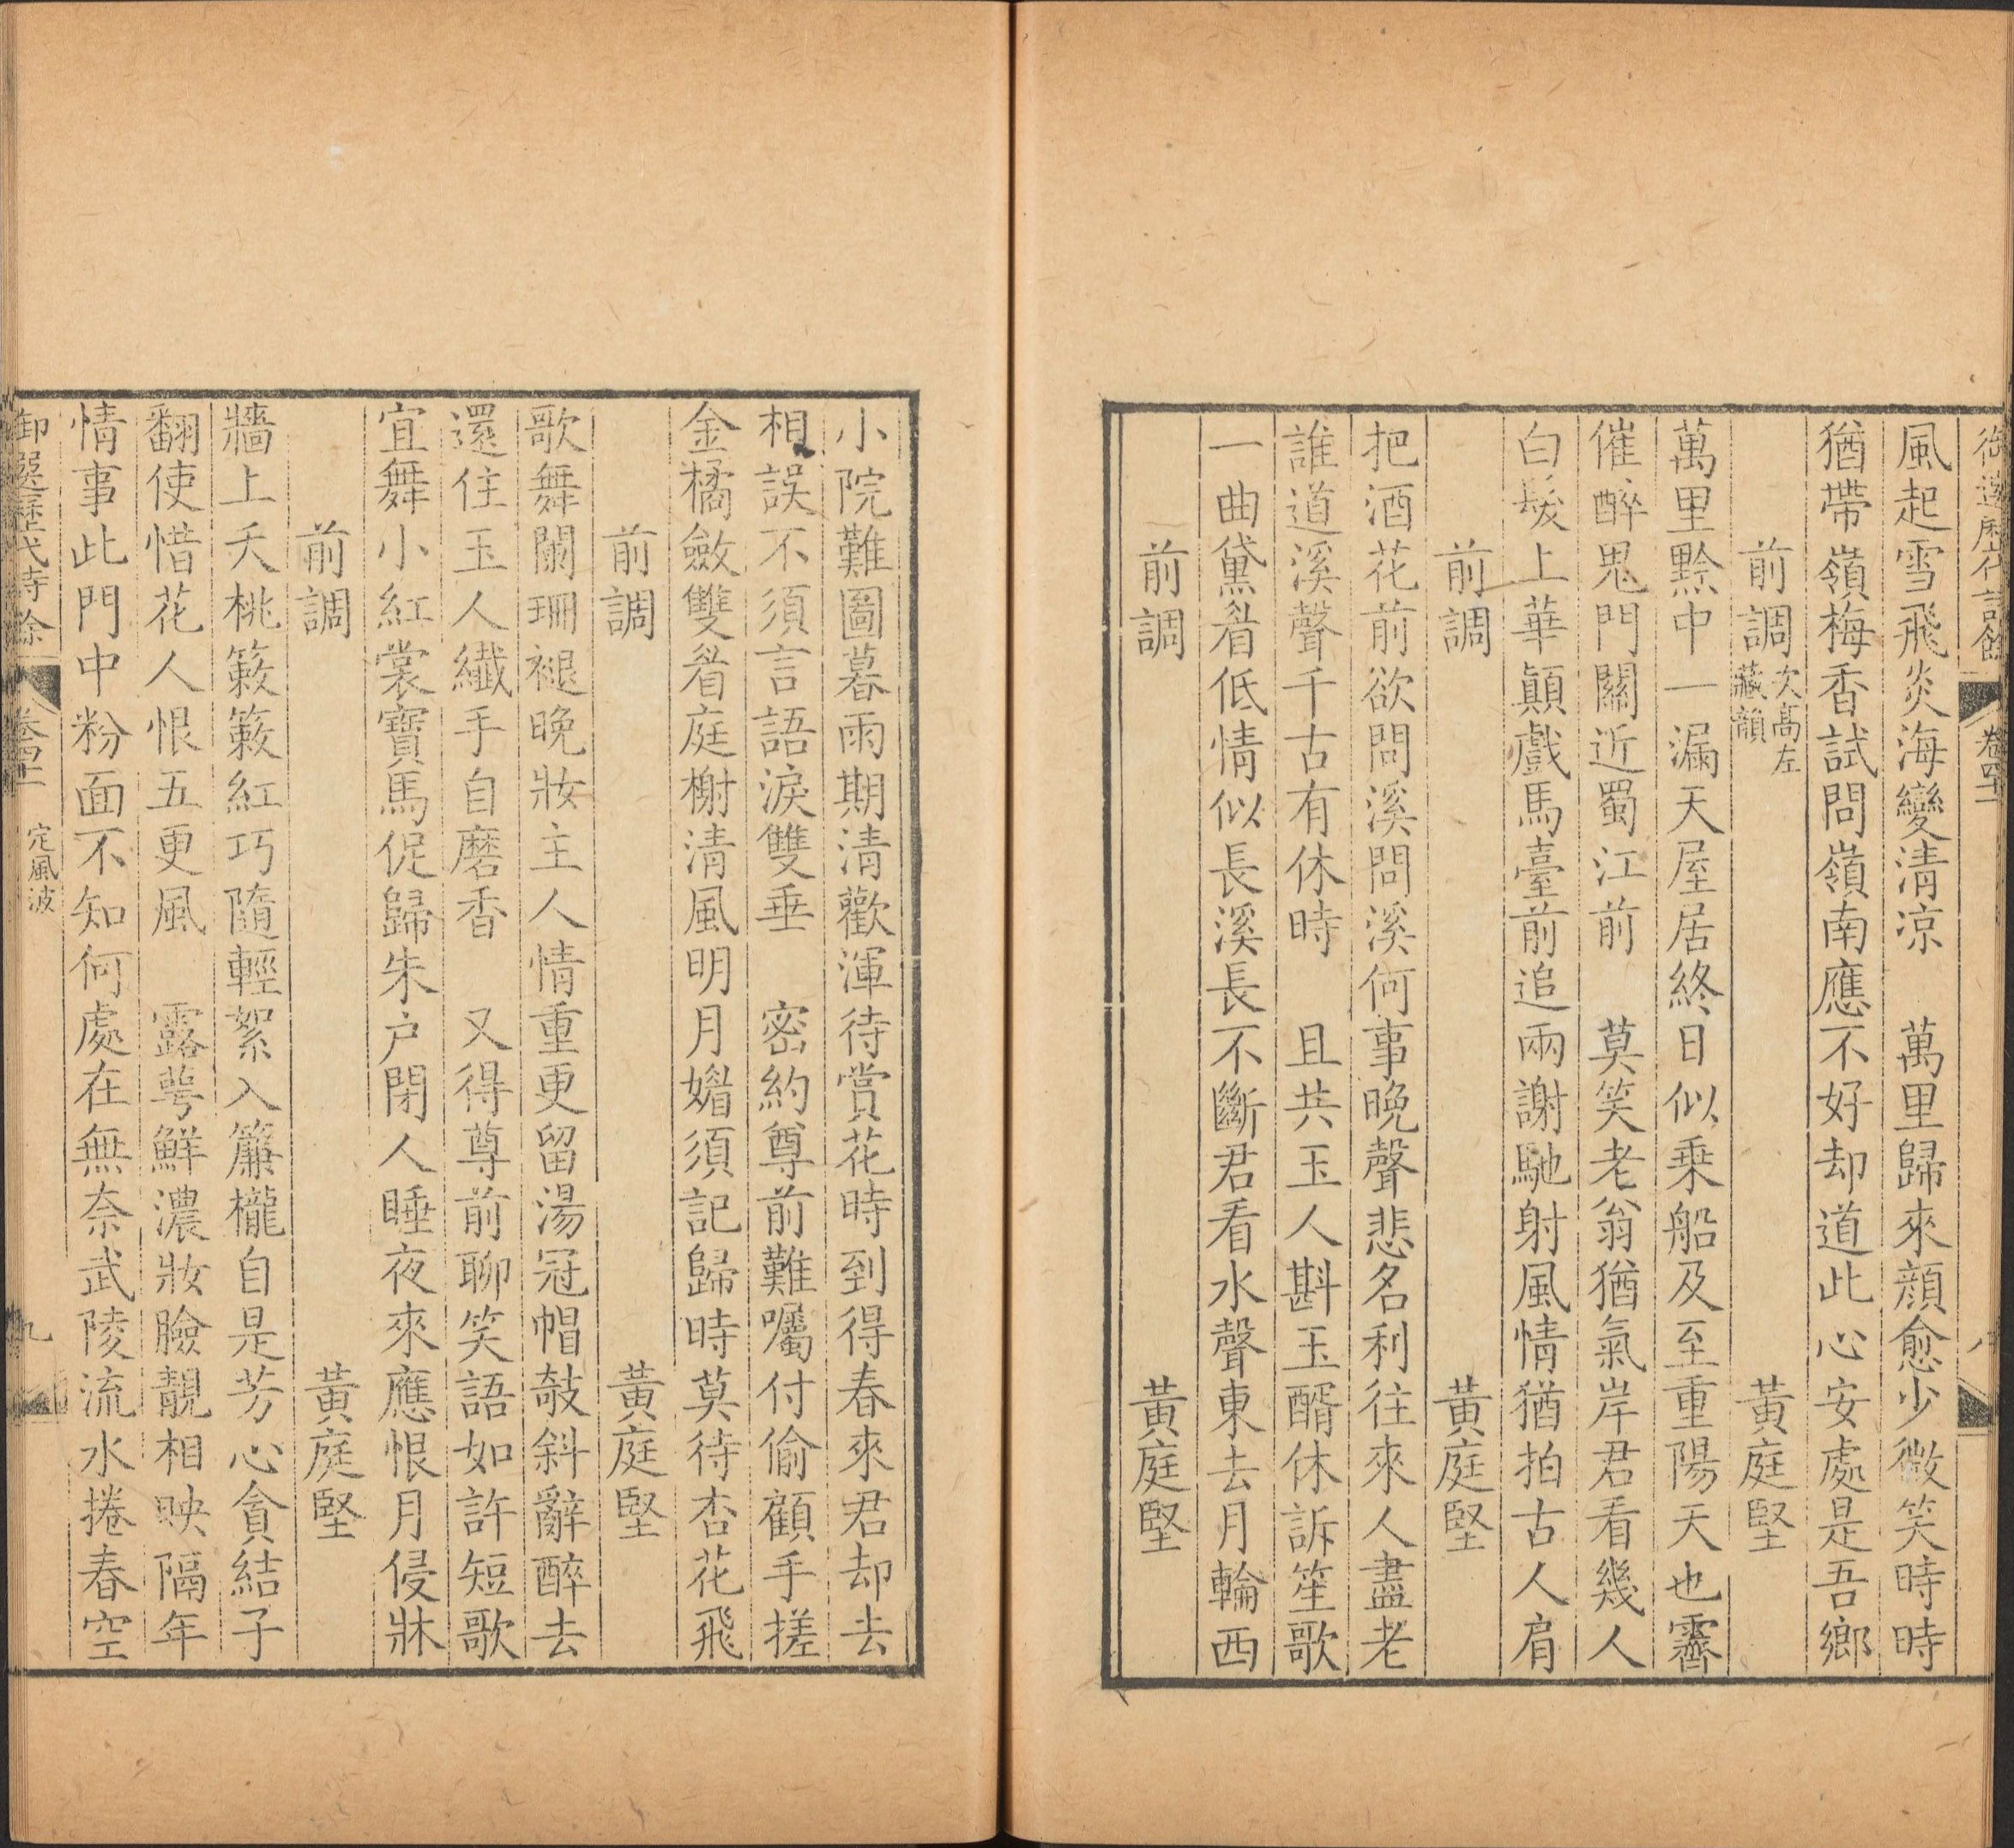 御選歷代詩餘 卷四十一 八
風起雪飛炎海變清凉　萬里歸來顔愈少微笑時時
猶帶嶺梅香試問嶺南應不好却道此心安處是吾鄉
前調次高左藏韻　黃庭堅
萬里黔中一漏天屋居終日似乘船及至重陽天也霽
催醉鬼門關近蜀江前　莫笑老翁猶氣岸君看幾人
白髮上華顛戲馬臺前追兩謝馳射風情猶拍古人肩
前調　黃庭堅
把酒花前欲問溪問溪何事晚聲悲名利往來人盡老
誰道溪聲千古有休時　且共玉人斟玉醑休訴笙歌
一曲黛眉低情似長溪長不斷君看水聲東去月輪西
前調　黃庭堅
小院難圖暮雨期清歡渾待賞花時到得春來君却去
相誤不須言語淚雙垂　密約尊前難囑付偷顧手搓
金橘斂雙眉庭榭清風明月媚須記歸時莫待杏花飛
前調　黃庭堅
歌舞闌珊褪晚妝主人情重更留湯冠帽攲斜辭醉去
還住玉人纖手自磨香　又得尊前聊笑語如許短歌
宜舞小紅裳寶馬促歸朱户閉人睡夜來應恨月侵牀
前調　黃庭堅
牆上夭桃簌簌紅巧隨輕絮入簾櫳自是芳心貪結子
翻使惜花人恨五更風　露萼鮮濃妝臉靚相映隔年
情事此門中粉面不知何處在無奈武陵流水捲春空
御選歷代詩餘 卷四十一 定風波 九